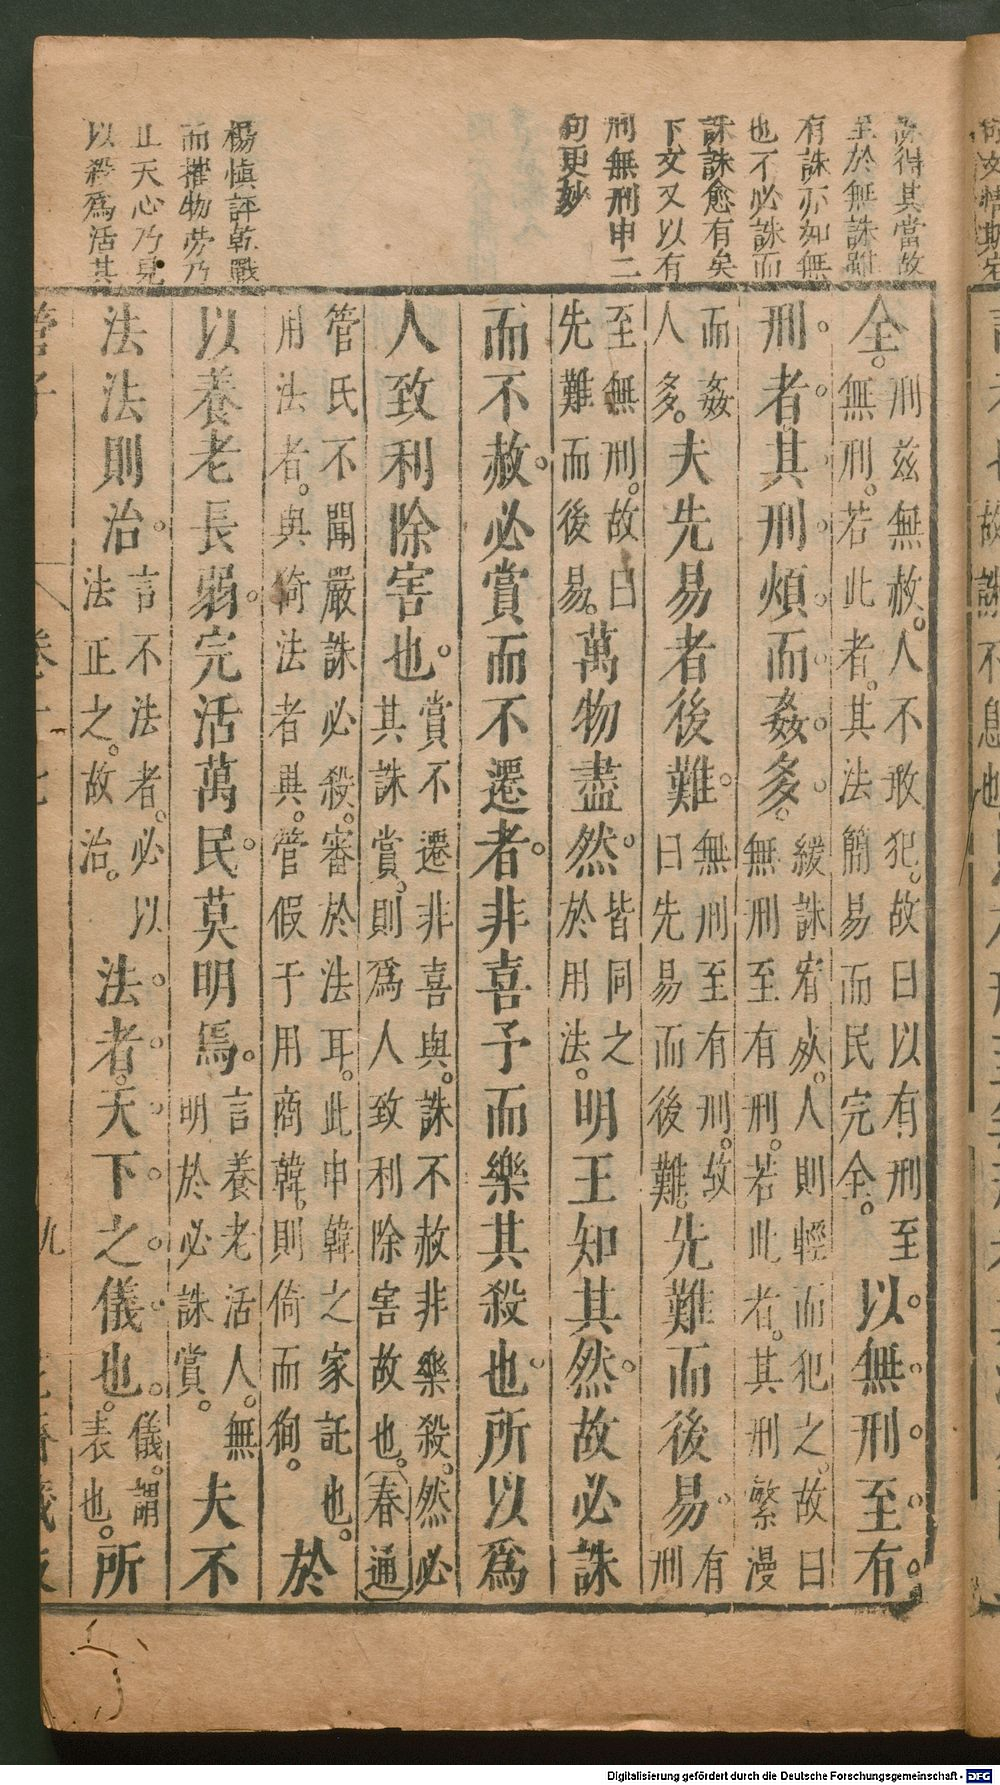 誅得其當故
至於無誅雖
有誅亦如無
也不必誅而
誅誅愈有矣
下文又以有
刑無刑申二
句更妙
楊慎評乾戰
而摧物勞乃
止天心乃見
以殺爲活其
全。刑兹無赦。人不敢犯。故曰以有刑至
無刑。若此者。其法簡易而民完全。以無刑至有
刑者。其刑煩而姦多。緩誅宥死。人則輕而犯之。故曰
無刑至有刑。若此者。其刑繁漫
而姦
人多。夫先易者後難。無刑至有刑。故
曰先易而後難。先難而後易。有
刑
至無刑。故曰
先難而後易。萬物盡然。皆同之
於用法。明王知其然。故必誅
而不赦。必賞而不遷者。非喜予而樂其殺也。所以爲
人致利除害也。賞不遷非喜與。誅不赦非樂殺。然必
其誅賞。則爲人致利除害故也。春通
管氏不聞嚴誅必殺。審於法耳。此申韓之家託也。
用法者。與倚法者與。管假于用商韓。則倚而狥。於
以養老長弱。完活萬民。莫明焉。言養老活人。無
明於必誅賞。夫不
法法則治。言不法者。必以
法正之。故治。法者。天下之儀也。儀。謂
表也。所
管子
卷十七
九
Digitalisierung gefördert durch die Deutsche Forschungsgemeinschaft - DFG